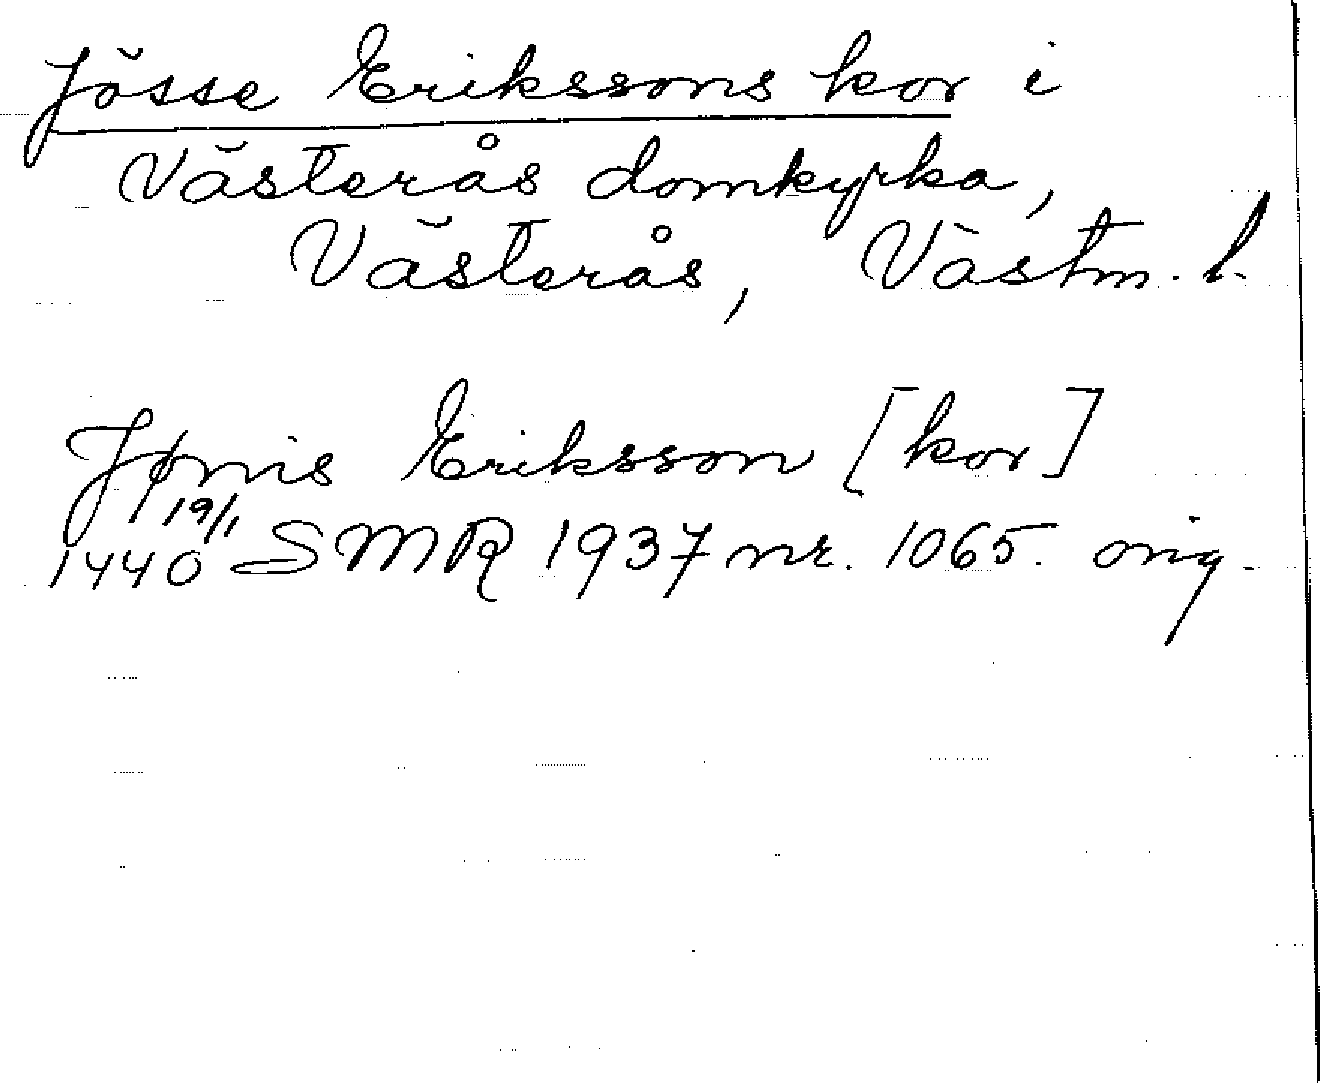 Jösse Erikssons kor i
Västerås domkyrka,
Västerås, Västm. l.
Jønis Eriksson [kor]
19/1
1440 SMR 1937 nr. 1065. orig.